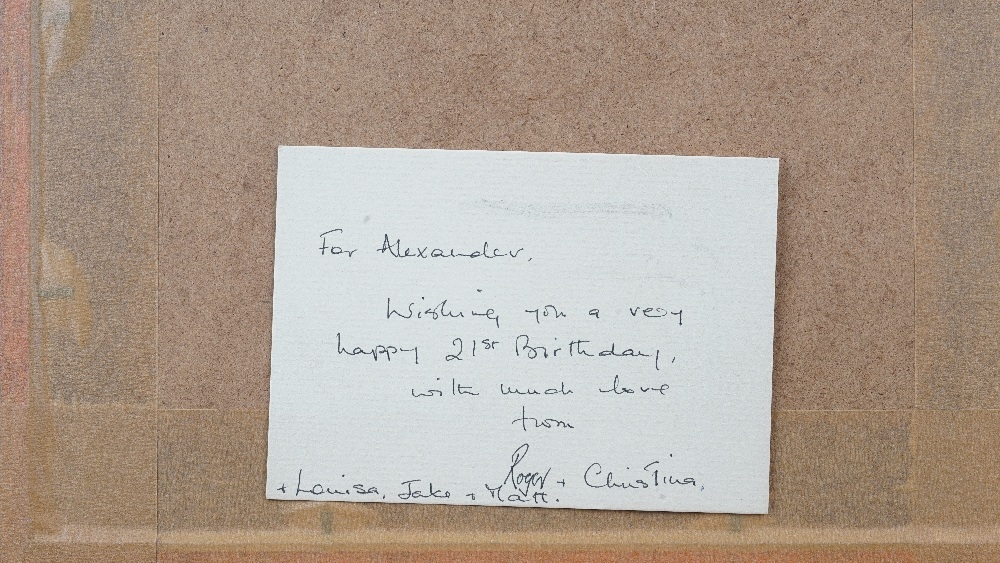 For Alexander,
Wishing you a very
happy 21st Birthday,
with much love
from
Roger + Christina,
+ Louisa, Jake + Matt.